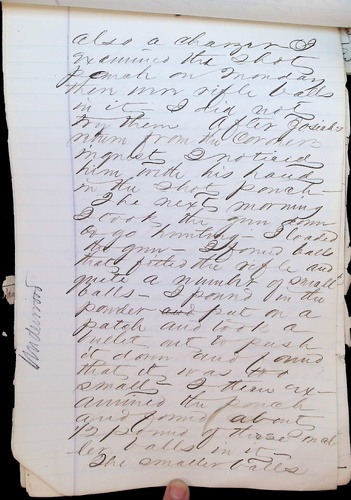 also a charger I
examined the shot
pouch on Monday
then no rifle balls
in it I did not
try them After Josiah's
return from the Coroners
inquest I noticed
him with his hand
in the shot pouch—
The next morning
I took the gun down
to go hunting— I loaded
the gun— I found balls
that fitted the rifle and
quite a number of small
balls— I pound in the
powder and put on a
patch and took a
bullet out to push
it down and found
that it was too
small? I then ex-
amined the pouch
and found about
12 pound of these smal-
ler balls in it—
The smaller balls
Underwood